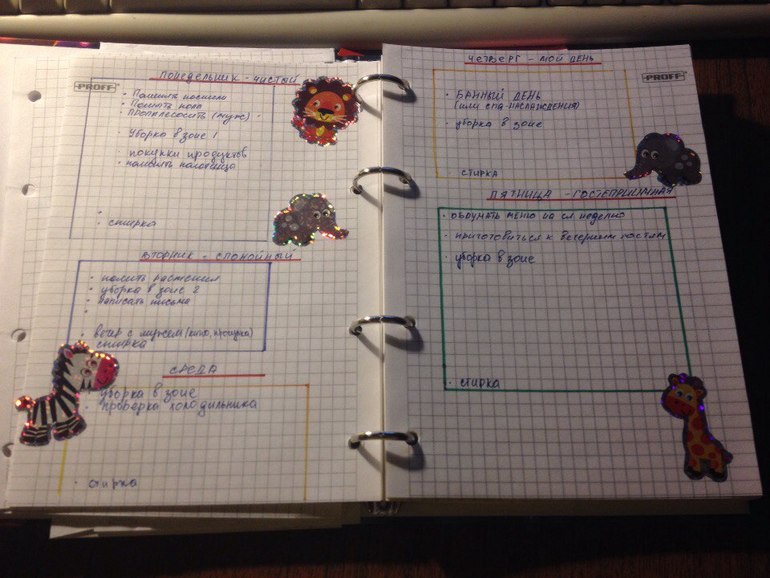 ПОНЕДЕЛЬНИК - ЧИСТЫЙ
PROFF
• Поменять постель
• Помыть полы
• Пропылесосить (муж)
Уборка в зоне 1
• покупки продуктов
• намыть
• стирка
ВТОРНИК - СПОКОЙНЫЙ
• полить растения
• уборка в зоне 2
• написать письма
• вечер с мужем (кино, прогулка)
стирка
СРЕДА
• уборка в зоне
• проверка холодильника
• стирка
ЧЕТВЕРГ - МОЙ ДЕНЬ
PROFF
• БАННЫЙ ДЕНЬ
(или СПА-НАСЛАЖДЕНИЯ)
• уборка в зоне
• стирка
ПЯТНИЦА - ГОСТЕПРИИМНАЯ
• обдумать меню на сл неделю
• приготовиться к вечерним гостям
• уборка в зоне
• стирка